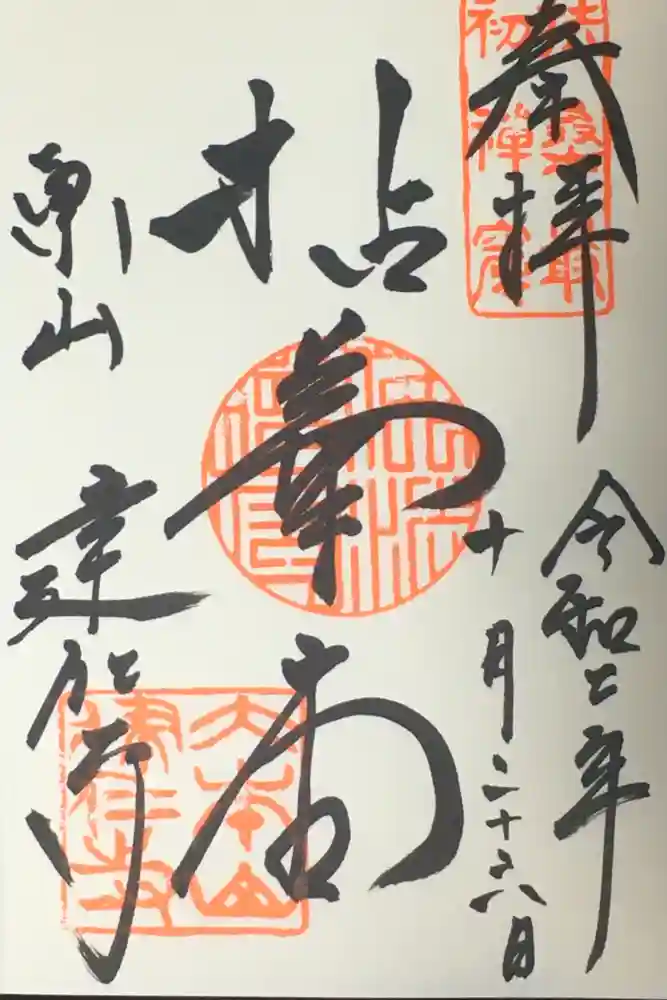 奉拝
令和二年
十月二十六日
拈華堂
東山
建仁寺
扶桑最
初禅窟
大本山
建仁寺